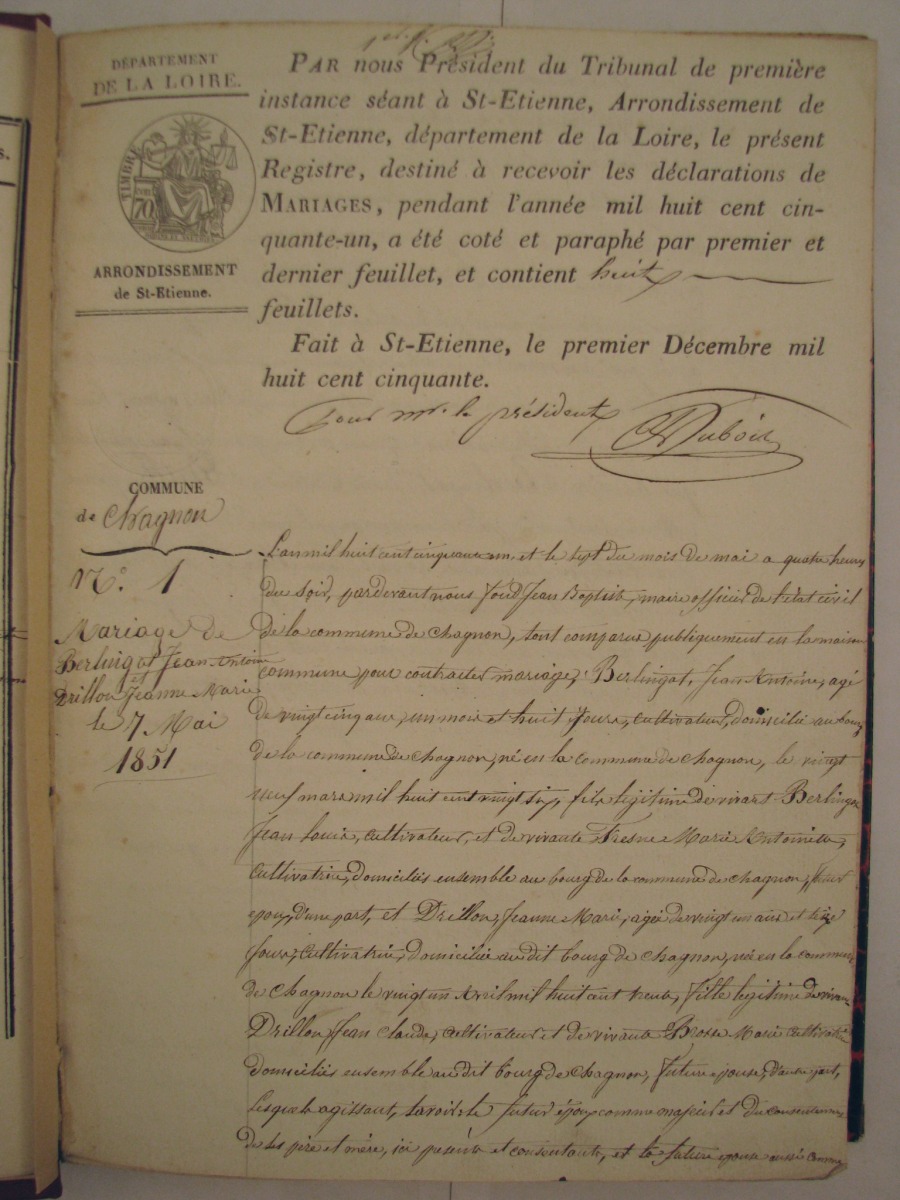 DÉPARTEMENT
DE LA LOIRE.
TIMBRE
70
ARRONDISSEMENT
de St-Etienne.
PAR nous Président du Tribunal de première
instance séant à St-Etienne, Arrondissement de
St-Etienne, département de la Loire, le présent
Registre, destiné à recevoir les déclarations de
MARIAGES, pendant l'année mil huit cent cin-
quante-un, a été coté et paraphé par premier et
dernier feuillet, et contient huit
feuillets.
Fait à St-Etienne, le premier Décembre mil
huit cent cinquante.
Pour mr. le président
Dubois
COMMUNE
de Chagnon
N°. 1
Mariage de
Berlingat Jean Antoine
et
Drillon Jeanne Marie
le 7 Mai
1851
L'an mil huit cent cinquante un, et le sept du mois de mai a quatre heures
du soir, pardevant nous Jean Baptiste, maire officier de l'état civil
de la commune de Chagnon, sont comparus publiquement en la maison
commune pour contracter mariage, Berlingat, Jean Antoine, agé
de vingt cinq ans, un mois et huit jours, cultivateur, domicilié au bourg
de la commune de Chagnon, né en la commune de Chagnon, le vingt
neuf mars mil huit cent vingt six, fils légitime de vivant Berlingat
Jean Louis, cultivateur, et de vivante Fresne Marie Antoinette,
cultivatrice, domiciliés ensemble au bourg de la commune de Chagnon, futur
époux, d'une part, et Drillon Jeanne Marie, agée de vingt un ans et seize
jours, cultivatrice, domiciliée au dit bourg de Chagnon, née en la commune
de Chagnon le vingt un Avril mil huit cent trente, fille légitime de vivant
Drillon Jean Claude, cultivateur et de vivante Marie cultivatrice
domiciliés ensemble au dit bourg de Chagnon, future épouse, d'autre part,
Lesquels agissant, savoir le futur époux comme majeur et du consentement
de ses père et mère, ici présents et consentants, et la future épouse aussi comme